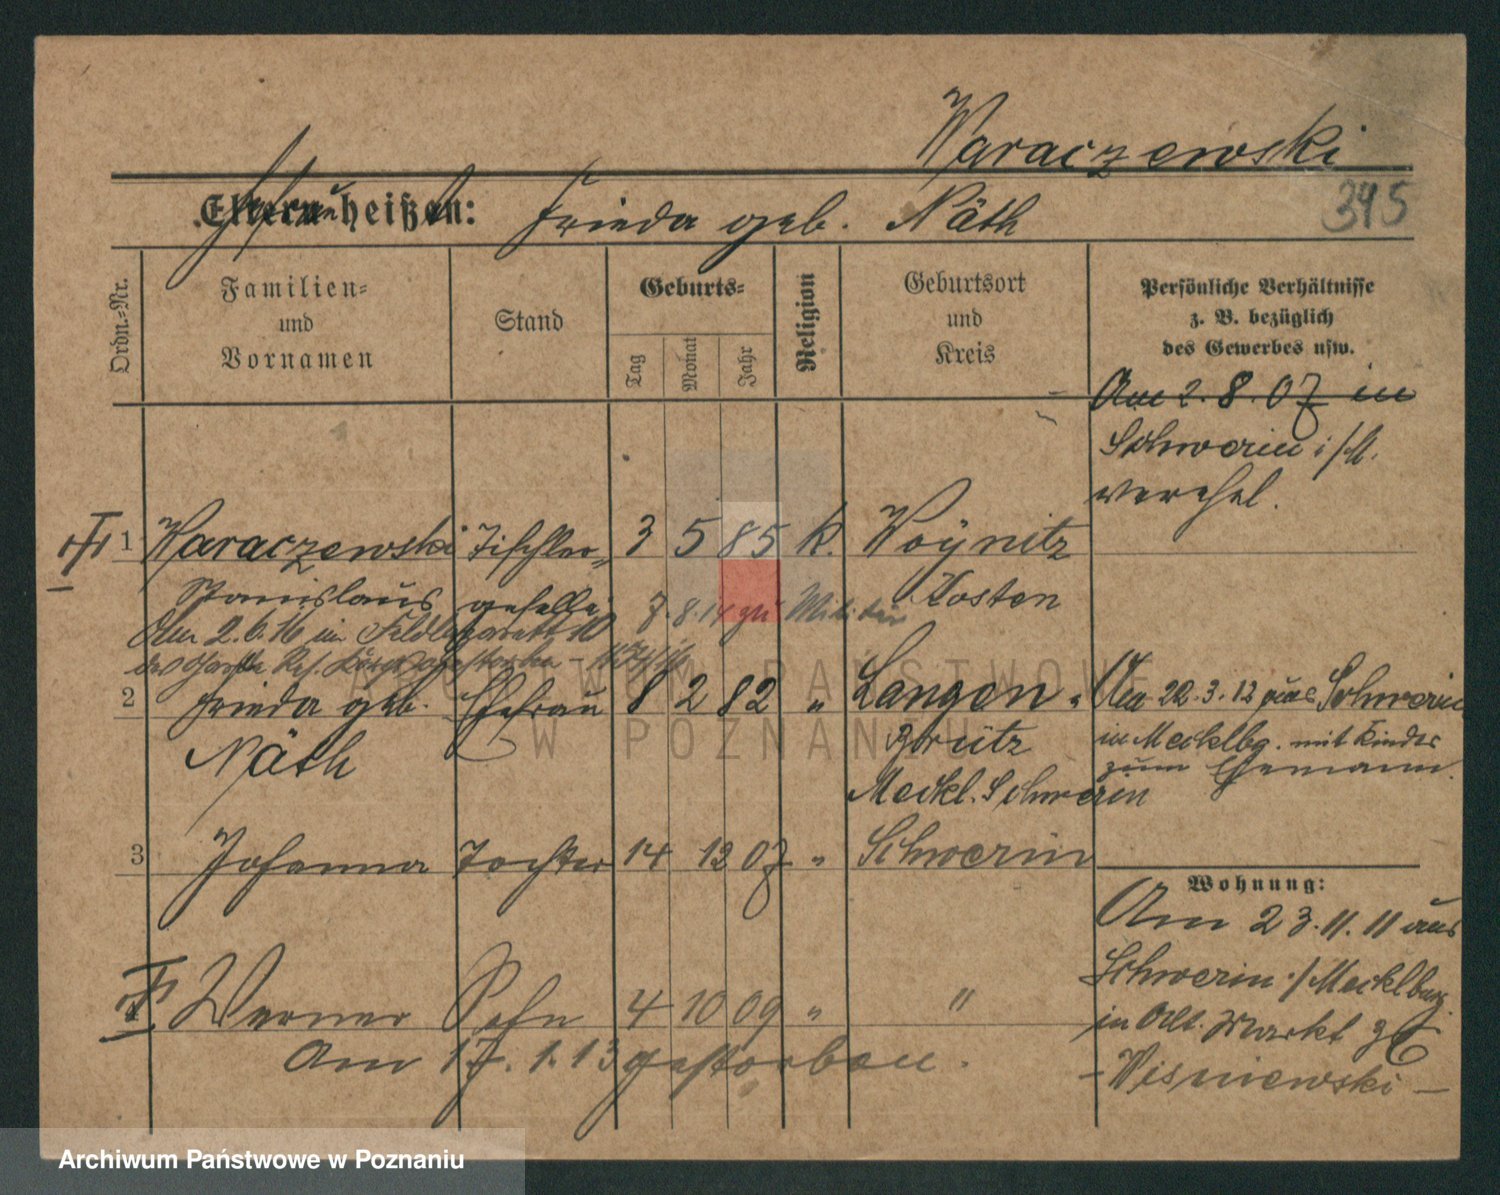 Waraczewski
345
Eltern heißen: Frieda geb. Näth
Ordn.-Nr.
Familien- und Vornamen
Stand
Geburts-
Tag
Monat
Jahr
Religion
Geburtsort und Kreis
Persönliche Verhältnisse
z. B. bezüglich
des Gewerbes usw.
Am 2.8.07 in
Schwerin i/M.
verehel.
1 Waraczewski Tischler- 3 5 85 k. Woynitz
Stanislaus geselle 7.8.14 zu Militär Kosten
Am 2.6.16 im Feldlazarett 10
des Garde Res. Korps gestorben
2 Frieda geb. Ehefrau 8 2 82 " Langen-
Näth brütz
Meckl. Schwerin
Am 22.3.12 aus Schwerin
in Mecklbg. mit Kinder
zum Ehemann.
3 Johanna Tochter 14 12 07 " Schwerin
Werner Sohn 4 10 09 " "
Am 17.1.13 gestorben.
Wohnung:
Am 23.11.11 aus
Schwerin i/Mecklburg.
in Alt. Markt
- Wisniewski -
ARCHIWUM PAŃSTWOWE
W POZNANIU
Archiwum Państwowe w Poznaniu